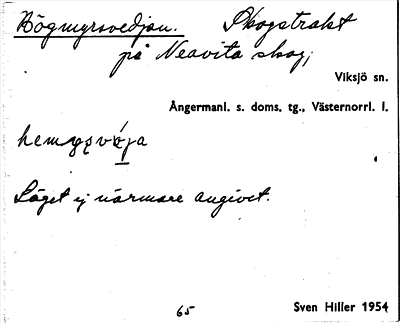 Högmyrsvedjan. Skogstrakt
på Neavita skog;
Viksjö sn.
Ångermanl. s. doms. tg., Västernorrl. l.
Läget ej närmare angivet.
65 Sven Hiller 1954